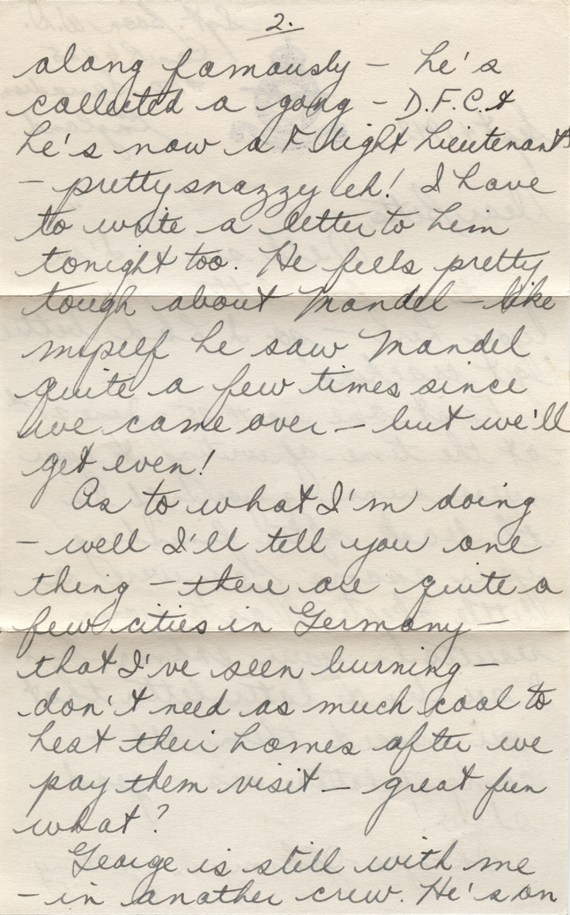 2.
along famously - he's
collected a gong - D.F.C. &
he's now a Flight Lieutenant
- pretty snazzy eh! I have
to write a letter to him
tonight too. He feels pretty
tough about Mandel - like
myself he saw Mandel
quite a few times since
we came over - but we'll
get even!
As to what I'm doing
- well I'll tell you one
thing - there are quite a
few cities in Germany -
that I've seen burning -
don't need as much coal to
heat their homes after we
pay them visit - great fun
what?
George is still with me
- in another crew. He's on